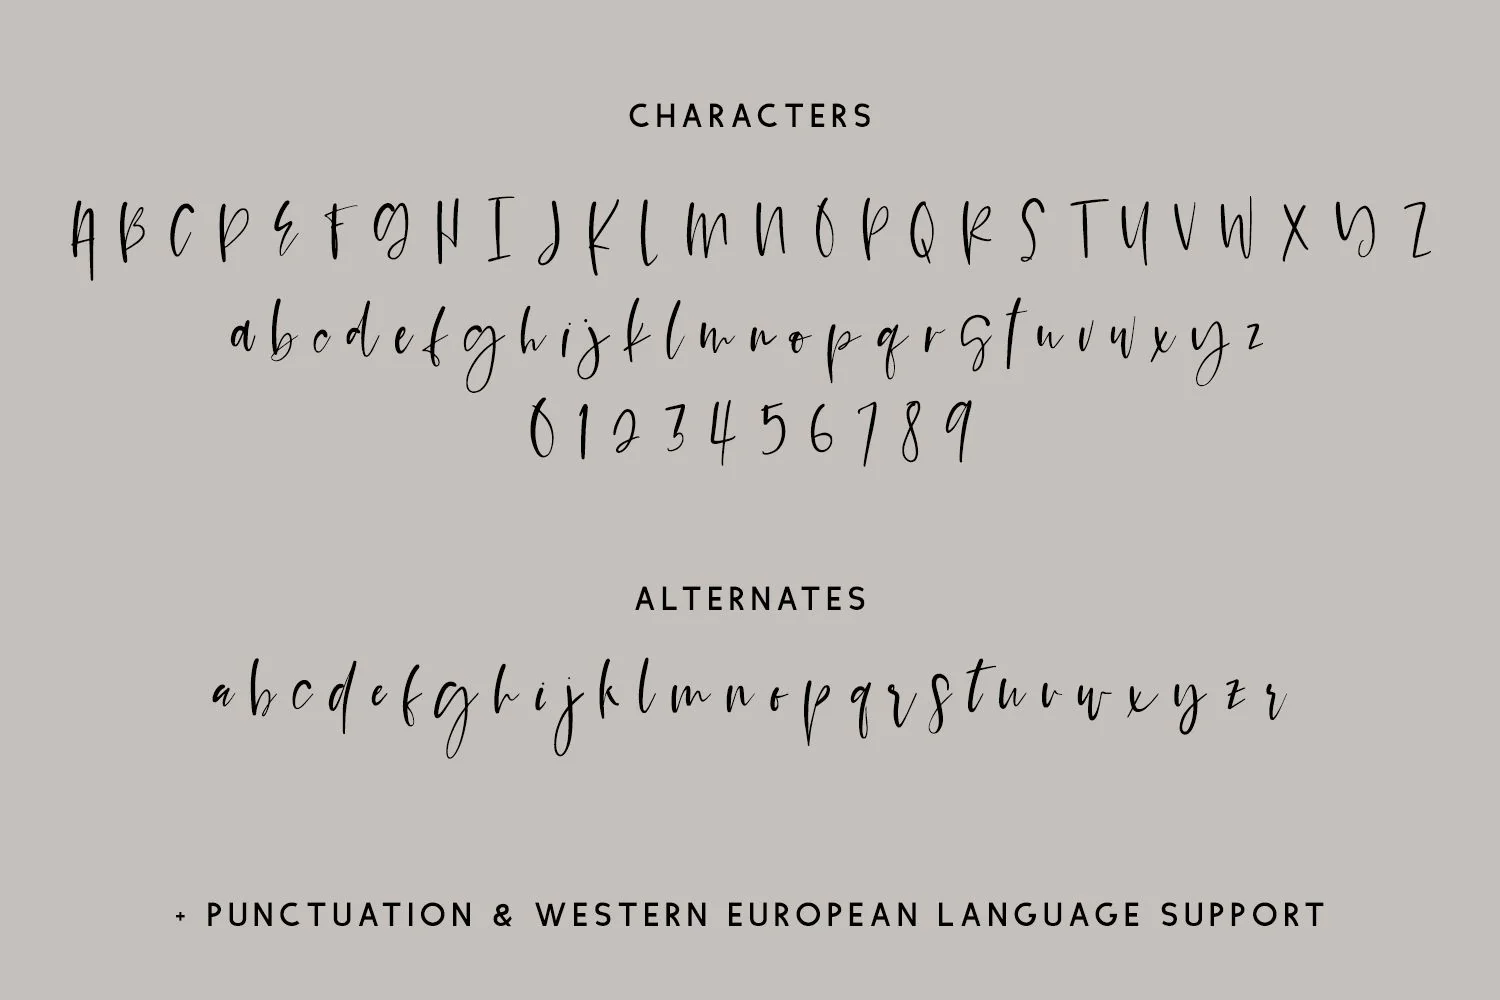 CHARACTERS
A B C D E F G H I J K L M N O P Q R S T U V W X Y Z
a b c d e f g h i j k l m n o p q r s t u v w x y z
0 1 2 3 4 5 6 7 8 9
ALTERNATES
a b c d e f g h i j k l m n o p q r s t u v w x y z r
+ PUNCTUATION & WESTERN EUROPEAN LANGUAGE SUPPORT